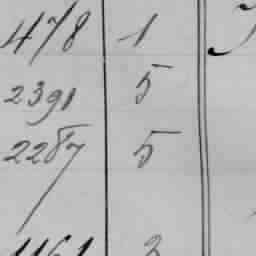 478 1
2391 5
2287 5
1161 2